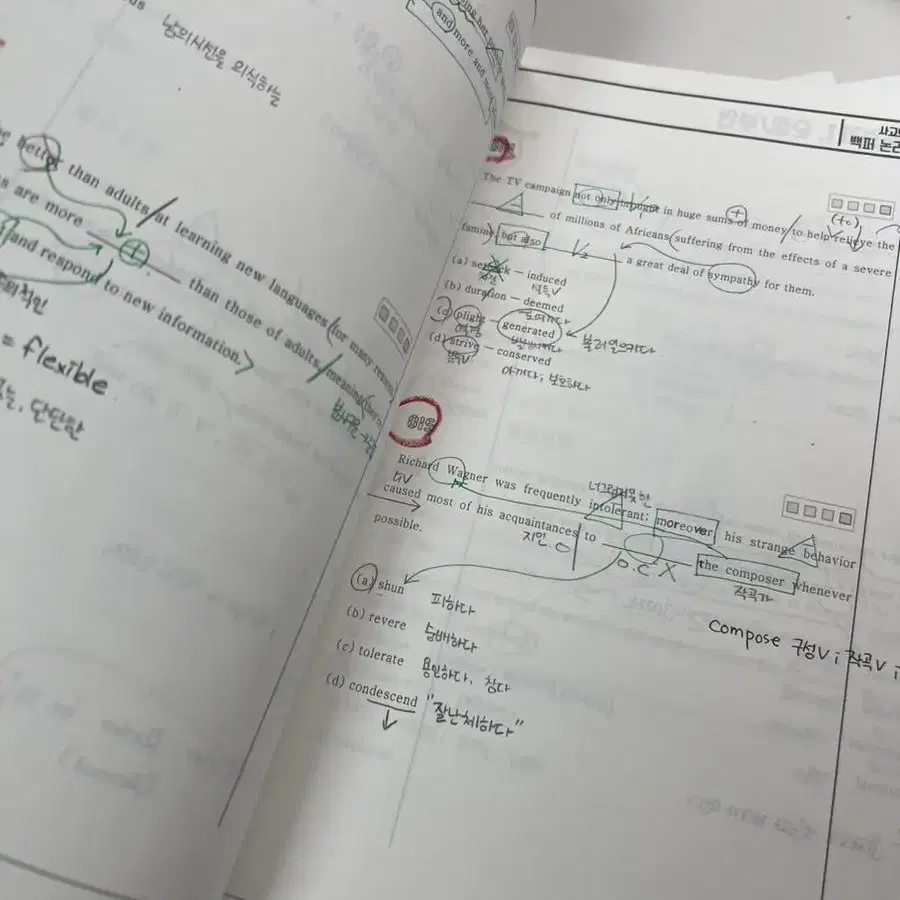 남의시선을 의식하는
and more and more
better than adults at learning new languages for many reasons
are more than those of adults, meaning
and respond to new information.
= flexible
단단한
백퍼 논리
The TV campaign not only brought in huge sums of money to help relieve the
(to)
of millions of Africans suffering from the effects of a severe
famine, but also a great deal of sympathy for them.
(a) setback — induced
(b) duration — deemed
(c) plight — generated
불러일으키다
(d) strive — conserved
아끼다; 보호하다
Richard Wagner was frequently intolerant; moreover, his strange behavior
너그럽지못한
caused most of his acquaintances to the composer whenever
지인.
O.C X
작곡가
possible.
compose 구성V ; 작곡V ;
(a) shun 피하다
(b) revere 숭배하다
(c) tolerate 용인하다, 참다
(d) condescend "잘난체하다"